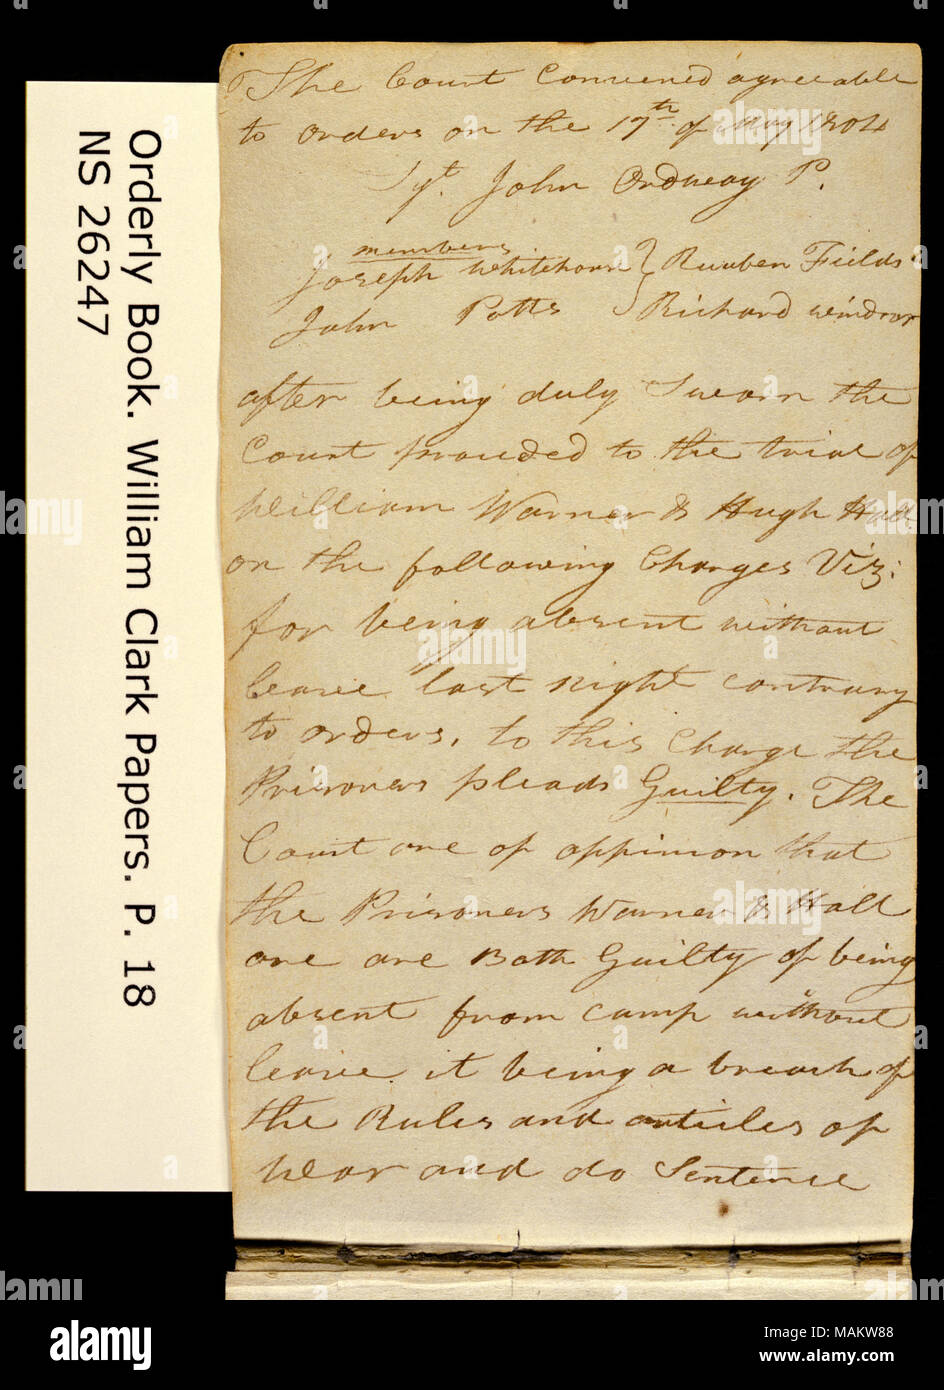 Orderly Book. William Clark Papers. P. 18
NS 26247
The Court Convened agreeable
to orders on the 17th of May 1804
Sgt. John Ordway P.
members
Joseph Whitehorn } Reuben Fields
John Potts } Richard Windsor
after being duly Sworn the
Court proceded to the trial of
William Warner & Hugh Hall
on the following Charges Viz:
for being absent without
leave last night contrary
to orders, to this Charge the
Prisoners pleads Guilty. The
Court are of oppinion that
the Prisoners Warner & Hall
are are Both Guilty of being
absent from camp without
leave it being a breach of
the Rules and articles of
War and do Sentence
alamy
Image ID: MAKW88
www.alamy.com